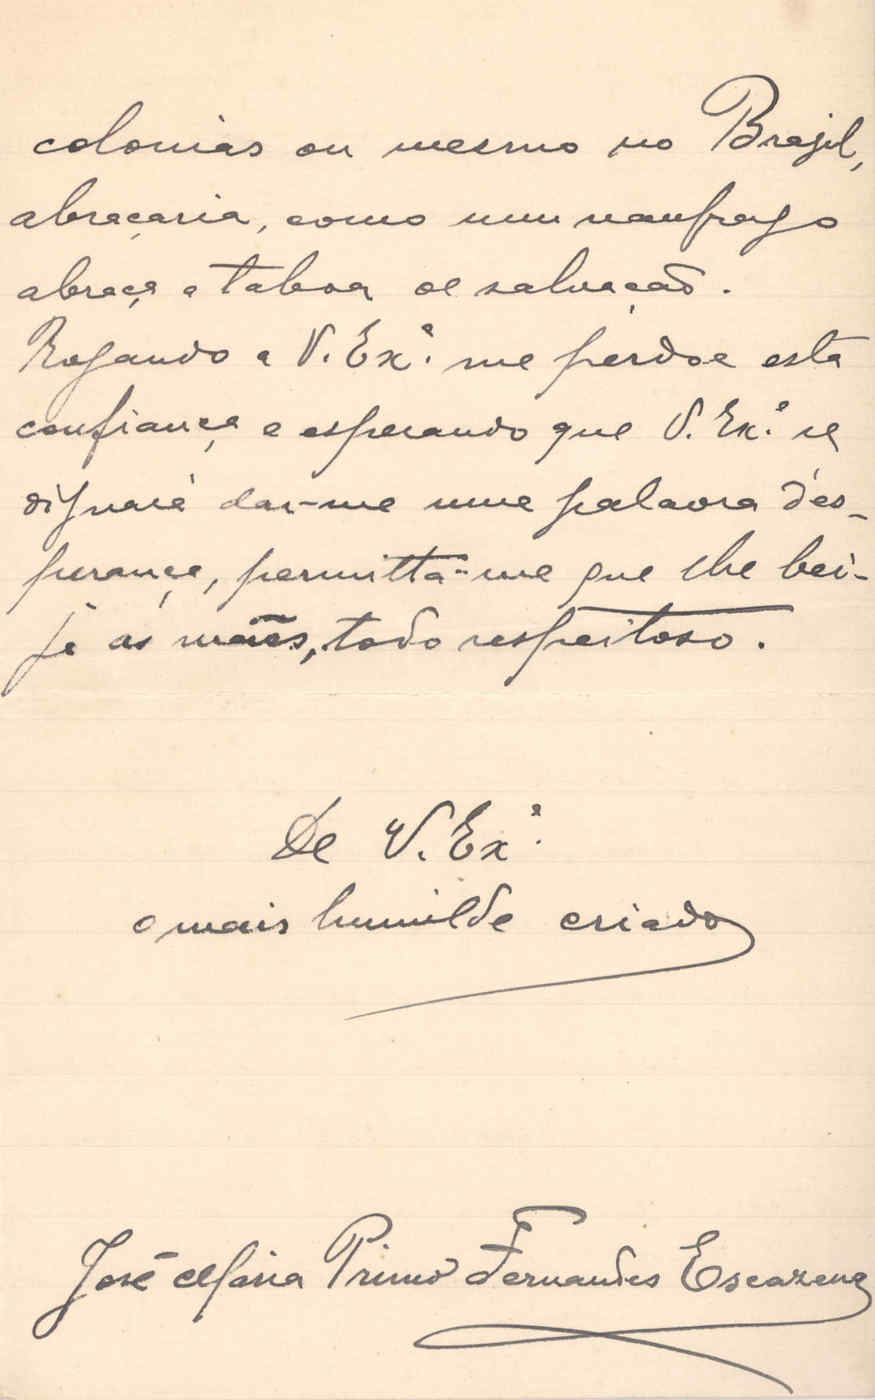 colonias ou mesmo no Brazil,
abraçaria, como um naufrago
abraça a taboa de salvação.
Rogando a V. Exª. me perdoe esta
confiança e esperando que V. Exª. se
dignará dar-me uma palavra d'es-
perança, permitta-me que lhe bei-
je as mãos, todo respeitoso.
De V. Exª.
o mais humilde criado
José Maria Primo Fernandes Escazena